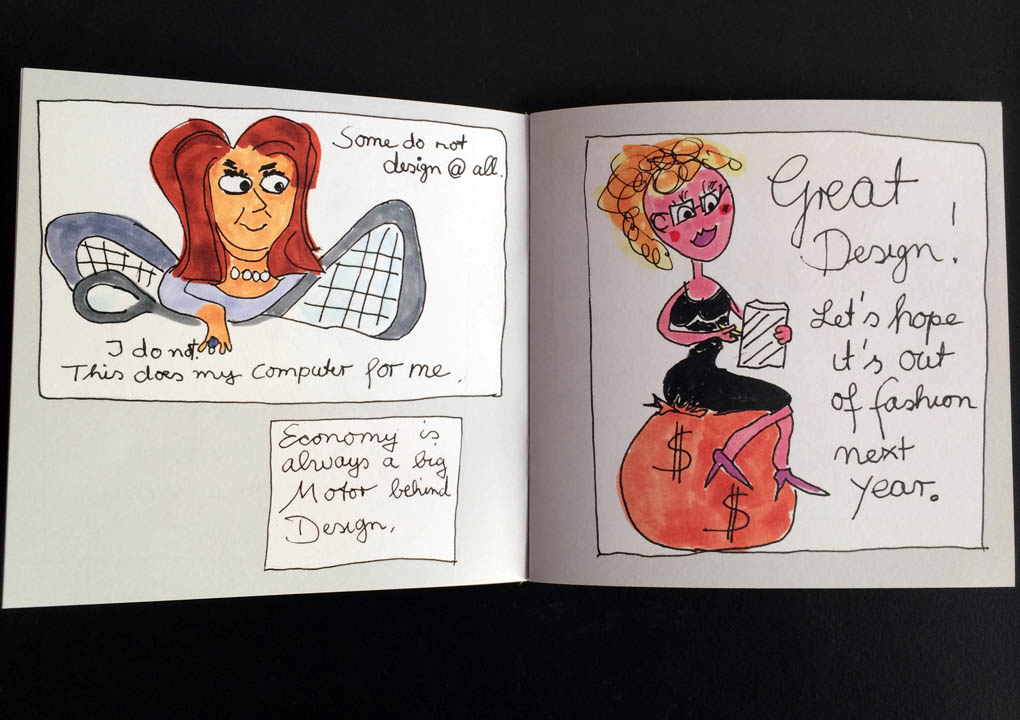 Some do not
design @ all.
I do not.
This does my computer for me.
Economy is
always a big
Motor behind
Design.
Great
Design!
Let's hope
it's out
of fashion
next
year.
$
$